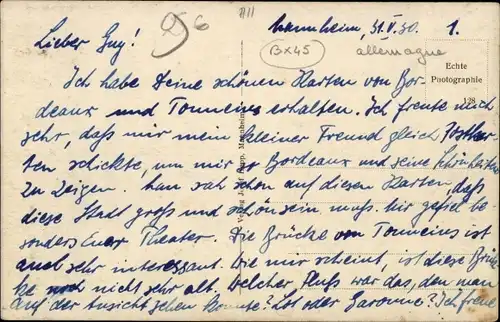 Mannheim, 31.V.30. 1.
#11
56
BX45
allemagne
Lieber Guy!
Echte
Photographie
128
Ich habe Deine schönen Karten von Bor-
deaux und Tonneins erhalten. Ich freute mich
sehr, daß mir mein kleiner Freund gleich Postkar-
ten schickte, um mir Bordeaux und seine Schönheiten
zu zeigen. Man sah schon auf diesen Karten, daß
diese Stadt groß und schön sein muß. Mir gefiel be-
sonders Euer Theater. Die Brücke von Tonneins ist
auch sehr interessant. Wie mir scheint, ist diese Brük-
ke noch nicht sehr alt. Welcher Fluß war das, den man
auf der Ansicht sehen konnte? Lot oder Garonne? Ich freue
Mannheim